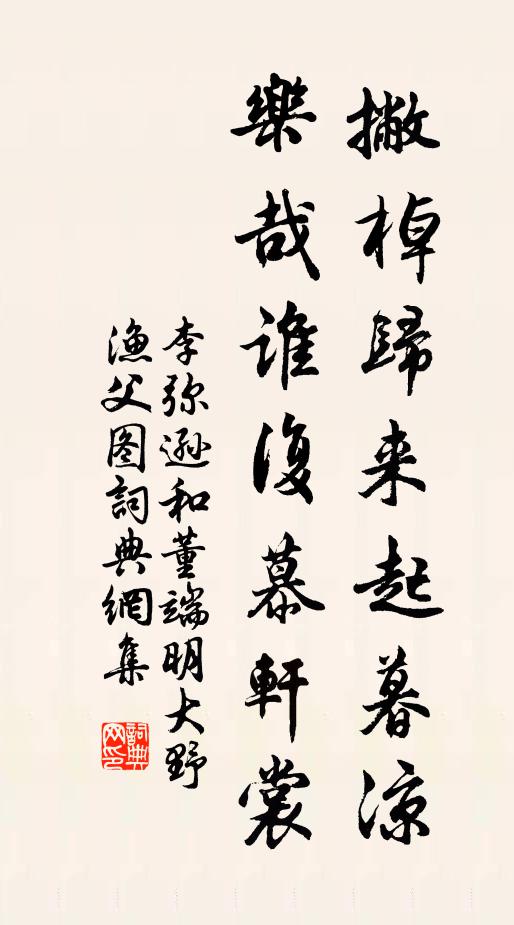 撇棹歸来起暮凉
樂哉誰復慕軒裳
李弥遜和董端明大野
漁父图詞典網集
詞典网印